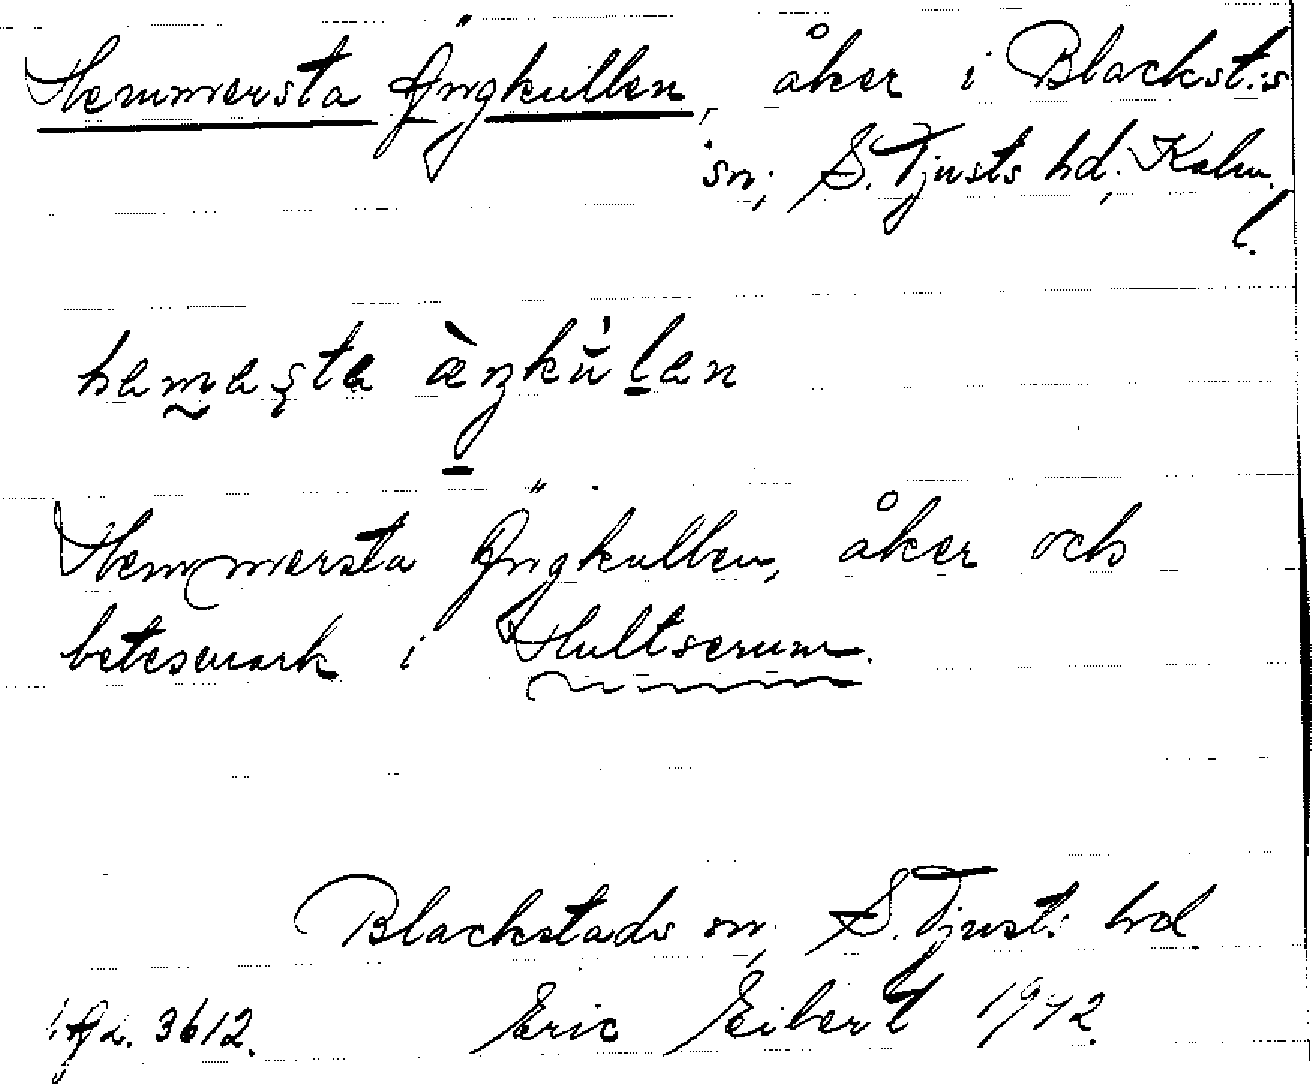 Hemmersta Ängkullen, åker i Blackst:s
sn, S. Tjusts hd, Kalm.
l.
hemersta ängkullen
Hemmersta Ängkullen, åker och
betesmark i Hultserum.
Blackstads sn, S. Tjusts hd
3612. Eric Eibert 1942.